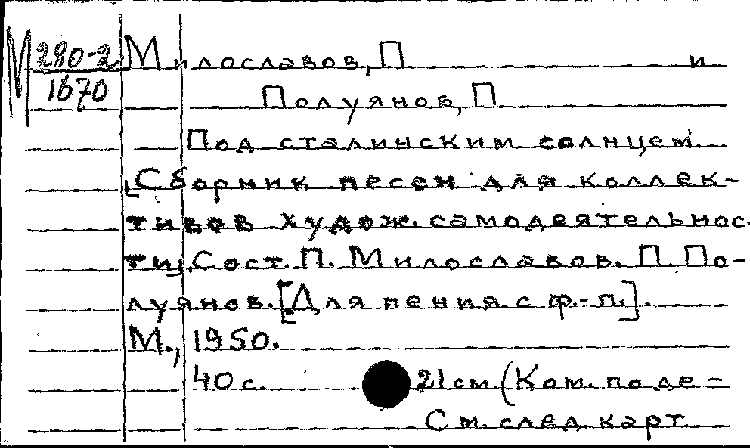 М 280-2 Милославов, П. и
1670 Полуянов, П.
Под сталинским солнцем.
[Сборник песен для коллек-
тивов худож. самодеятельнос-
ти]. Сост. П. Милославов. П. По-
луянов. [Для пения с ф.-п.].
М., 1950.
40 с. 21 см. (Ком. по де-
См. след. карт.